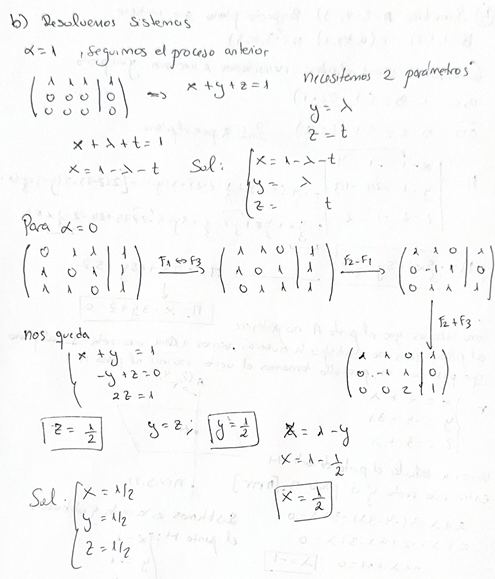 b) Resolvemos sistemas
α=1 , seguimos el proceso anterior
( 1 1 1 | 1 ; 0 0 0 | 0 ; 0 0 0 | 0 ) ⇒ x+y+z=1
Necesitamos 2 parámetros
y = λ
z = t
x+λ+t=1
x=1-λ-t
Sol: { x=1-λ-t
y= λ
z= t
Para α=0
( 0 1 1 | 1 ; 1 0 1 | 1 ; 1 1 0 | 1 ) F1↔F3 → ( 1 1 0 | 1 ; 1 0 1 | 1 ; 0 1 1 | 1 ) F2-F1 → ( 1 1 0 | 1 ; 0 -1 1 | 0 ; 0 1 1 | 1 )
↓ F2+F3
( 1 1 0 | 1 ; 0 -1 1 | 0 ; 0 0 2 | 1 )
nos queda
{ x + y = 1
-y+z=0
2z=1
z = 1/2 y=z; y=1/2 x=1-y
x=1-1/2
x=1/2
Sol: { x=1/2
y=1/2
z=1/2